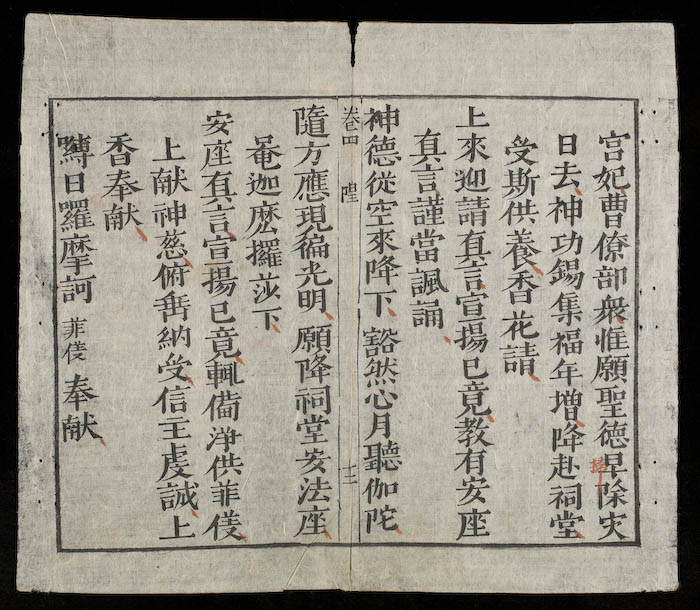 宫妃曹僚部衆惟願聖德早除灾
日去神功錫集福年增降赴祠堂
受斯供養香花請
上來迎請真言宣揚已竟教有安座
真言謹當諷誦
神德從空來降下豁然心月聽伽陀
卷四 隍 十二
隨方應現徧光明願降祠堂安法座
菴迦麽攞莎下
安座真言宣揚已竟輒俻淨供菲儀
上献神慈俯垂納受信王虔誠上
香奉献
嚩日囉摩訶 菲儀 奉献